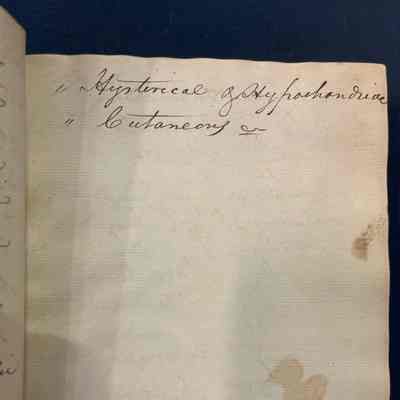 " Hysterical & Hypochondriac
" Cutaneous &c